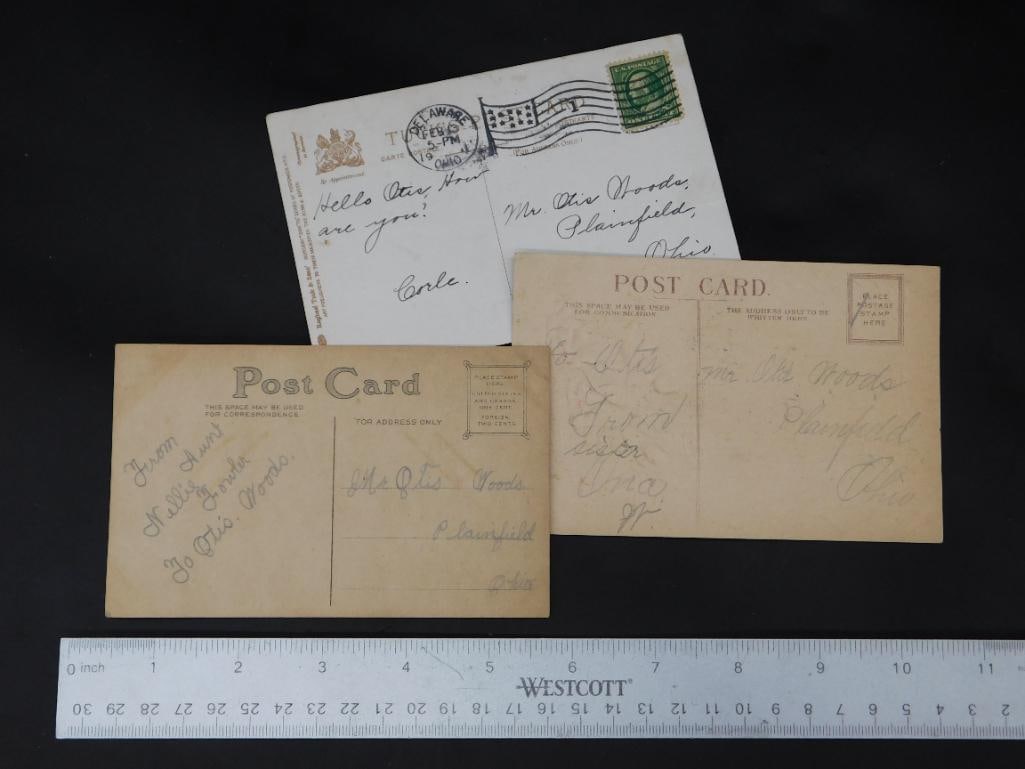 DELAWARE
FEB 13
5-PM
19
OHIO
U.S. POSTAGE
CARTE POSTALE
(FOR ADDRESS ONLY)
By Appointment
Raphael Tuck & Sons'
Hello Otis, How
are you?
Corle.
Mr. Otis Woods,
Plainfield,
Ohio
POST CARD.
THIS SPACE MAY BE USED
FOR COMMUNICATION
THE ADDRESS ONLY TO BE
WRITTEN HERE
PLACE
POSTAGE
STAMP
HERE
To Otis
From
sister
Ina
W.
Mr Otis Woods
Plainfield
Ohio
Post Card
THIS SPACE MAY BE USED
FOR CORRESPONDENCE
FOR ADDRESS ONLY
PLACE STAMP
HERE
UNITED STATES
AND CANADA
ONE CENT
FOREIGN
TWO CENTS
From
Nellie Aunt
Fowler
To Otis. Woods.
Mr Otis Woods
Plainfield
Ohio
0 inch 1 2 3 4 5 6 7 8 9 10 11
WESTCOTT®
30 29 28 27 26 25 24 23 22 21 20 19 18 17 16 15 14 13 12 11 10 9 8 7 6 5 4 3 2